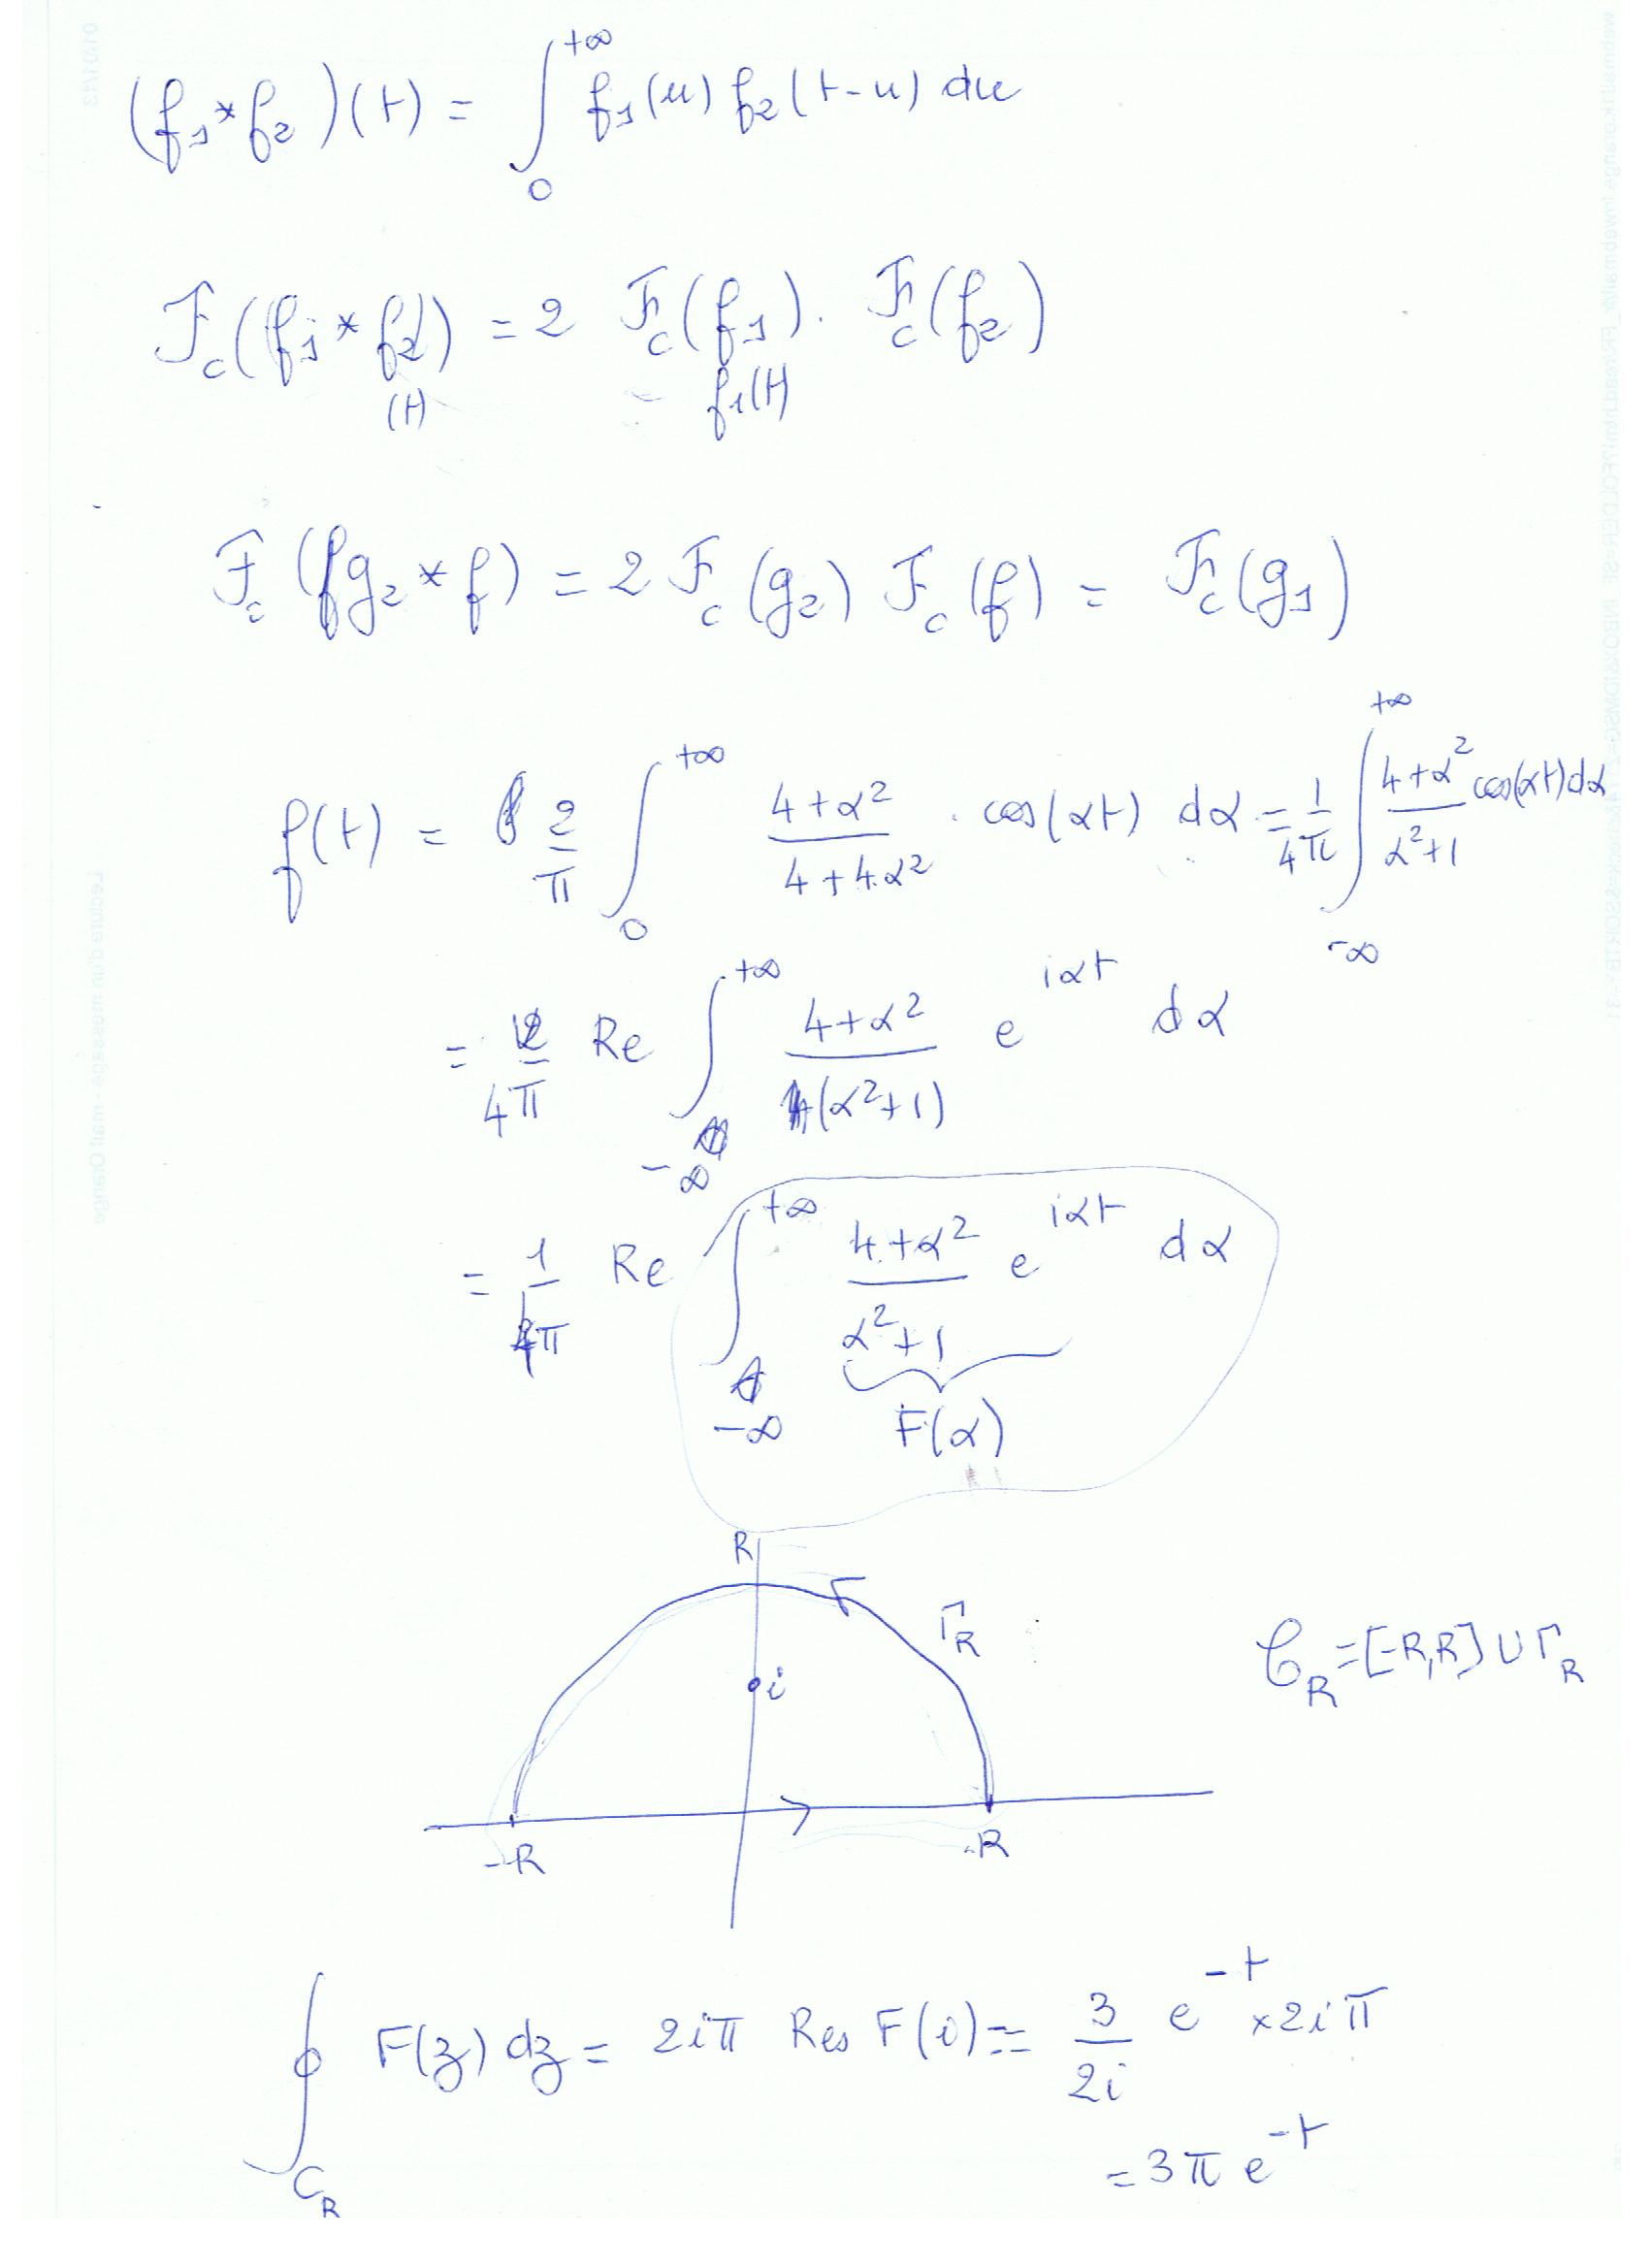 (f₁*f₂)(t) = ∫₀^{+∞} f₁(u) f₂(t-u) du
F_c(f₁*f₂) = 2 F_c(f₁). F_c(f₂)
(t) f₁(t)
F_c(g₂*f) = 2 F_c(g₂) F_c(f) = F_c(g₁)
f(t) = 2/π ∫₀^{+∞} (4+α²)/(4+4α²) . cos(αt) dα = 1/4π ∫_{-∞}^{+∞} (4+α²)/(α²+1) cos(αt)dα
= 1/4π Re ∫_{-∞}^{+∞} (4+α²)/(α²+1) e^{iαt} dα
= 1/4π Re ∫_{-∞}^{+∞} (4+α²)/(α²+1) e^{iαt} dα
F(α)
R
Γ_R
C_R = [-R,R] ∪ Γ_R
i
-R R
∮_{C_R} F(z) dz = 2iπ Res F(i) = 3/2i e^{-t} ×2iπ
= 3π e^{-t}